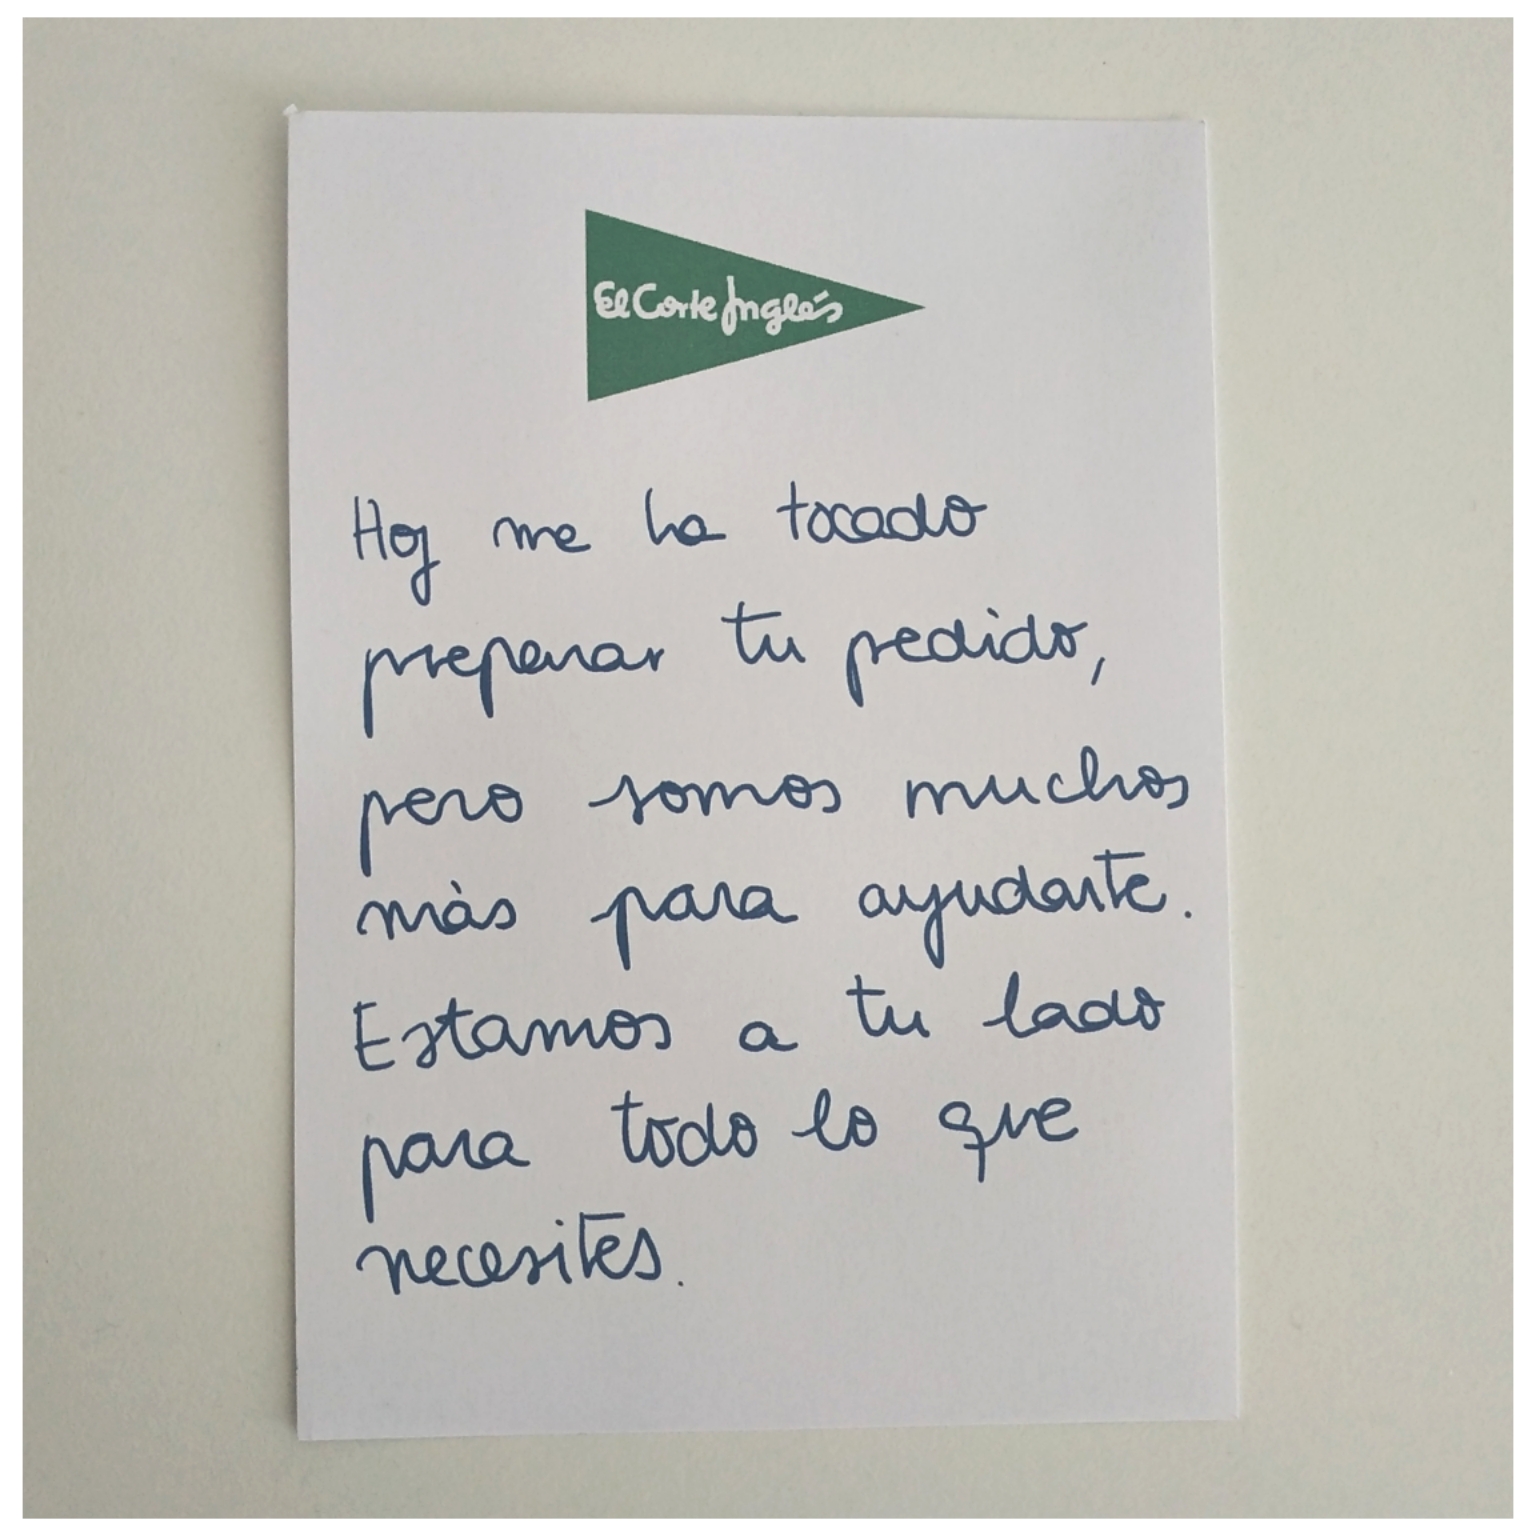 El Corte Inglés
Hoy me ha tocado
preparar tu pedido,
pero somos muchos
màs para ayudarte.
Estamos a tu lado
para todo lo que
necesites.